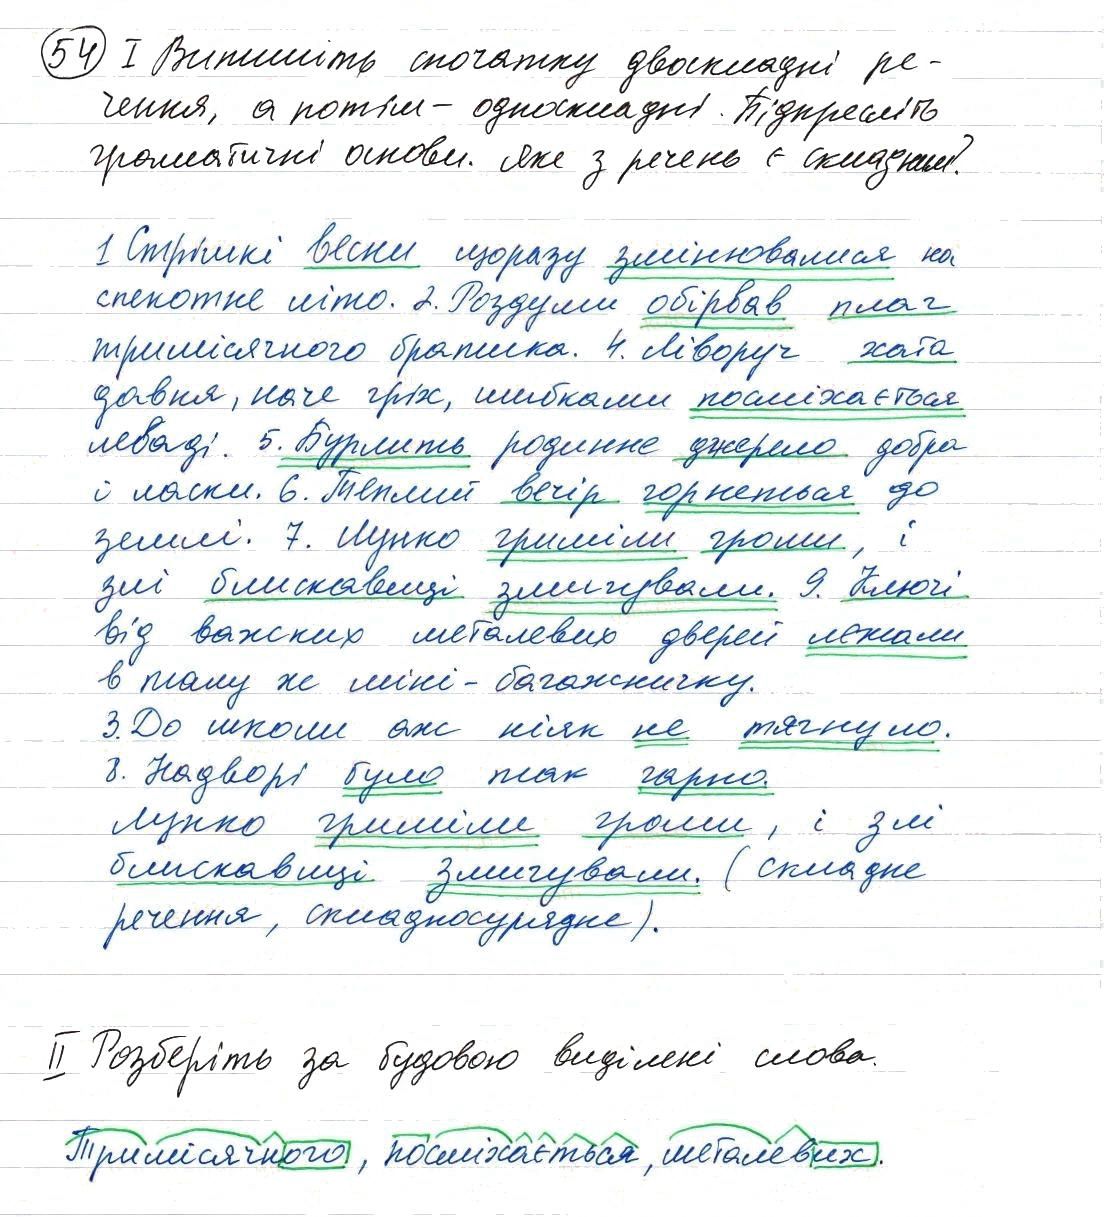 54 I Випишіть спочатку двоскладні ре-
чення, а потім – односкладні. Підкресліть
граматичні основи. Яке з речень є складним?
1 Стрімкі весни щоразу змінювалися на
спекотне літо. 2. Роздуми обірвав плач
тримісячного братика. 4. Ліворуч хата
давня, наче гріх, шибками посміхається
леваді. 5. Бурлить родинне джерело добра
і ласки. 6. Теплий вечір горнеться до
землі. 7. Лунко гриміли громи, і
злі блискавиці змигували. 9. Ключі
від важких металевих дверей лежали
в тому ж міні-багажничку.
3. До школи аж ніяк не тягнуло.
8. Надворі було так гарно.
Лунко гриміли громи, і злі
блискавиці змигували. (складне
речення, складносурядне).
II Розберіть за будовою виділені слова.
Тримісячного, посміхається, металевих.